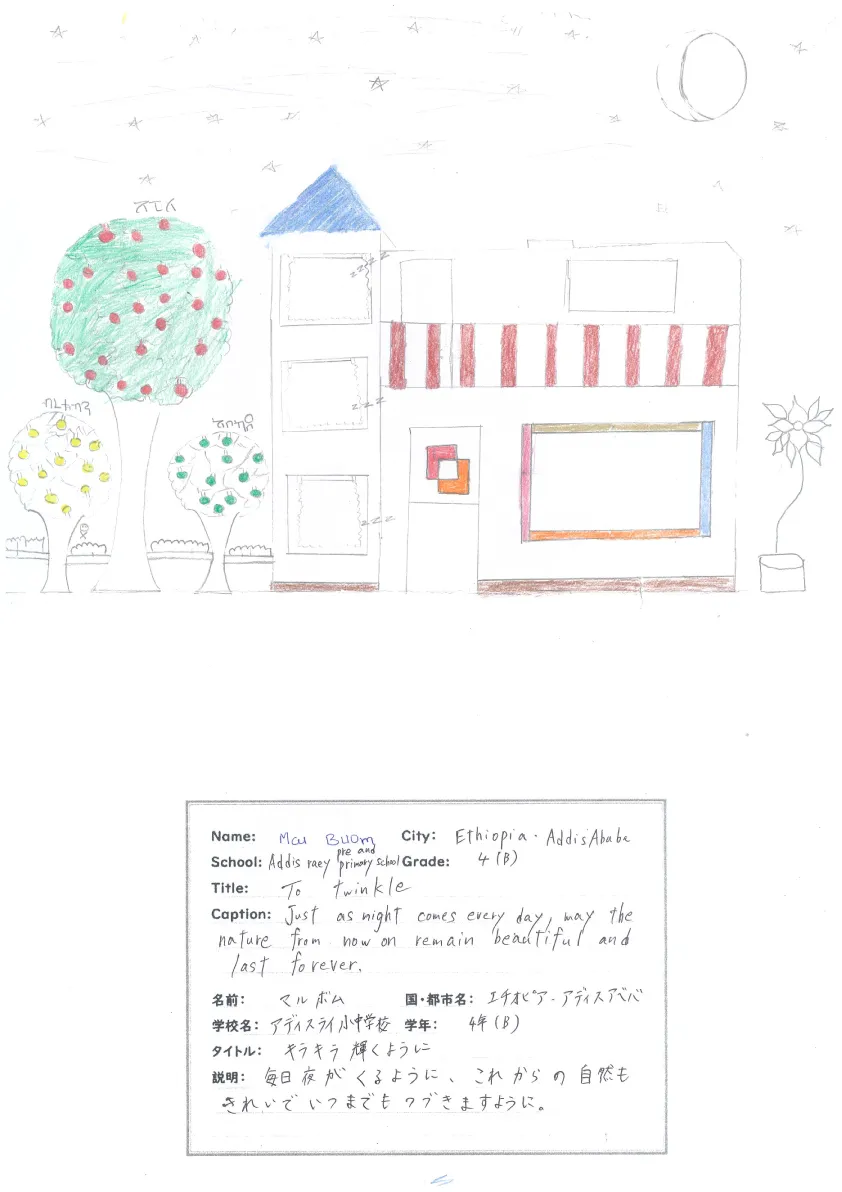 zzzz
zzzz
zzzz
Name: Mal Buom City: Ethiopia. AddisAbaba
pre and
School: Addis raey primary school Grade: 4 (B)
Title: To twinkle
Caption: Just as night comes every day, may the
nature from now on remain beautiful and
last forever.
名前: マル ボム 国・都市名: エチオピア-アディスアベバ
学校名: アディスライ小中学校 学年: 4年(B)
タイトル: キラキラ 輝くように
説明: 毎日夜がくるように、これからの自然も
きれいでいつまでもつづきますように。